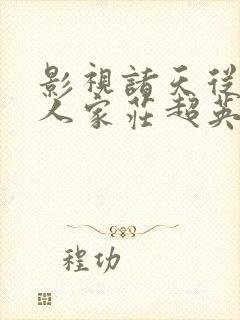 影視諸天從
人家莊超英
程功